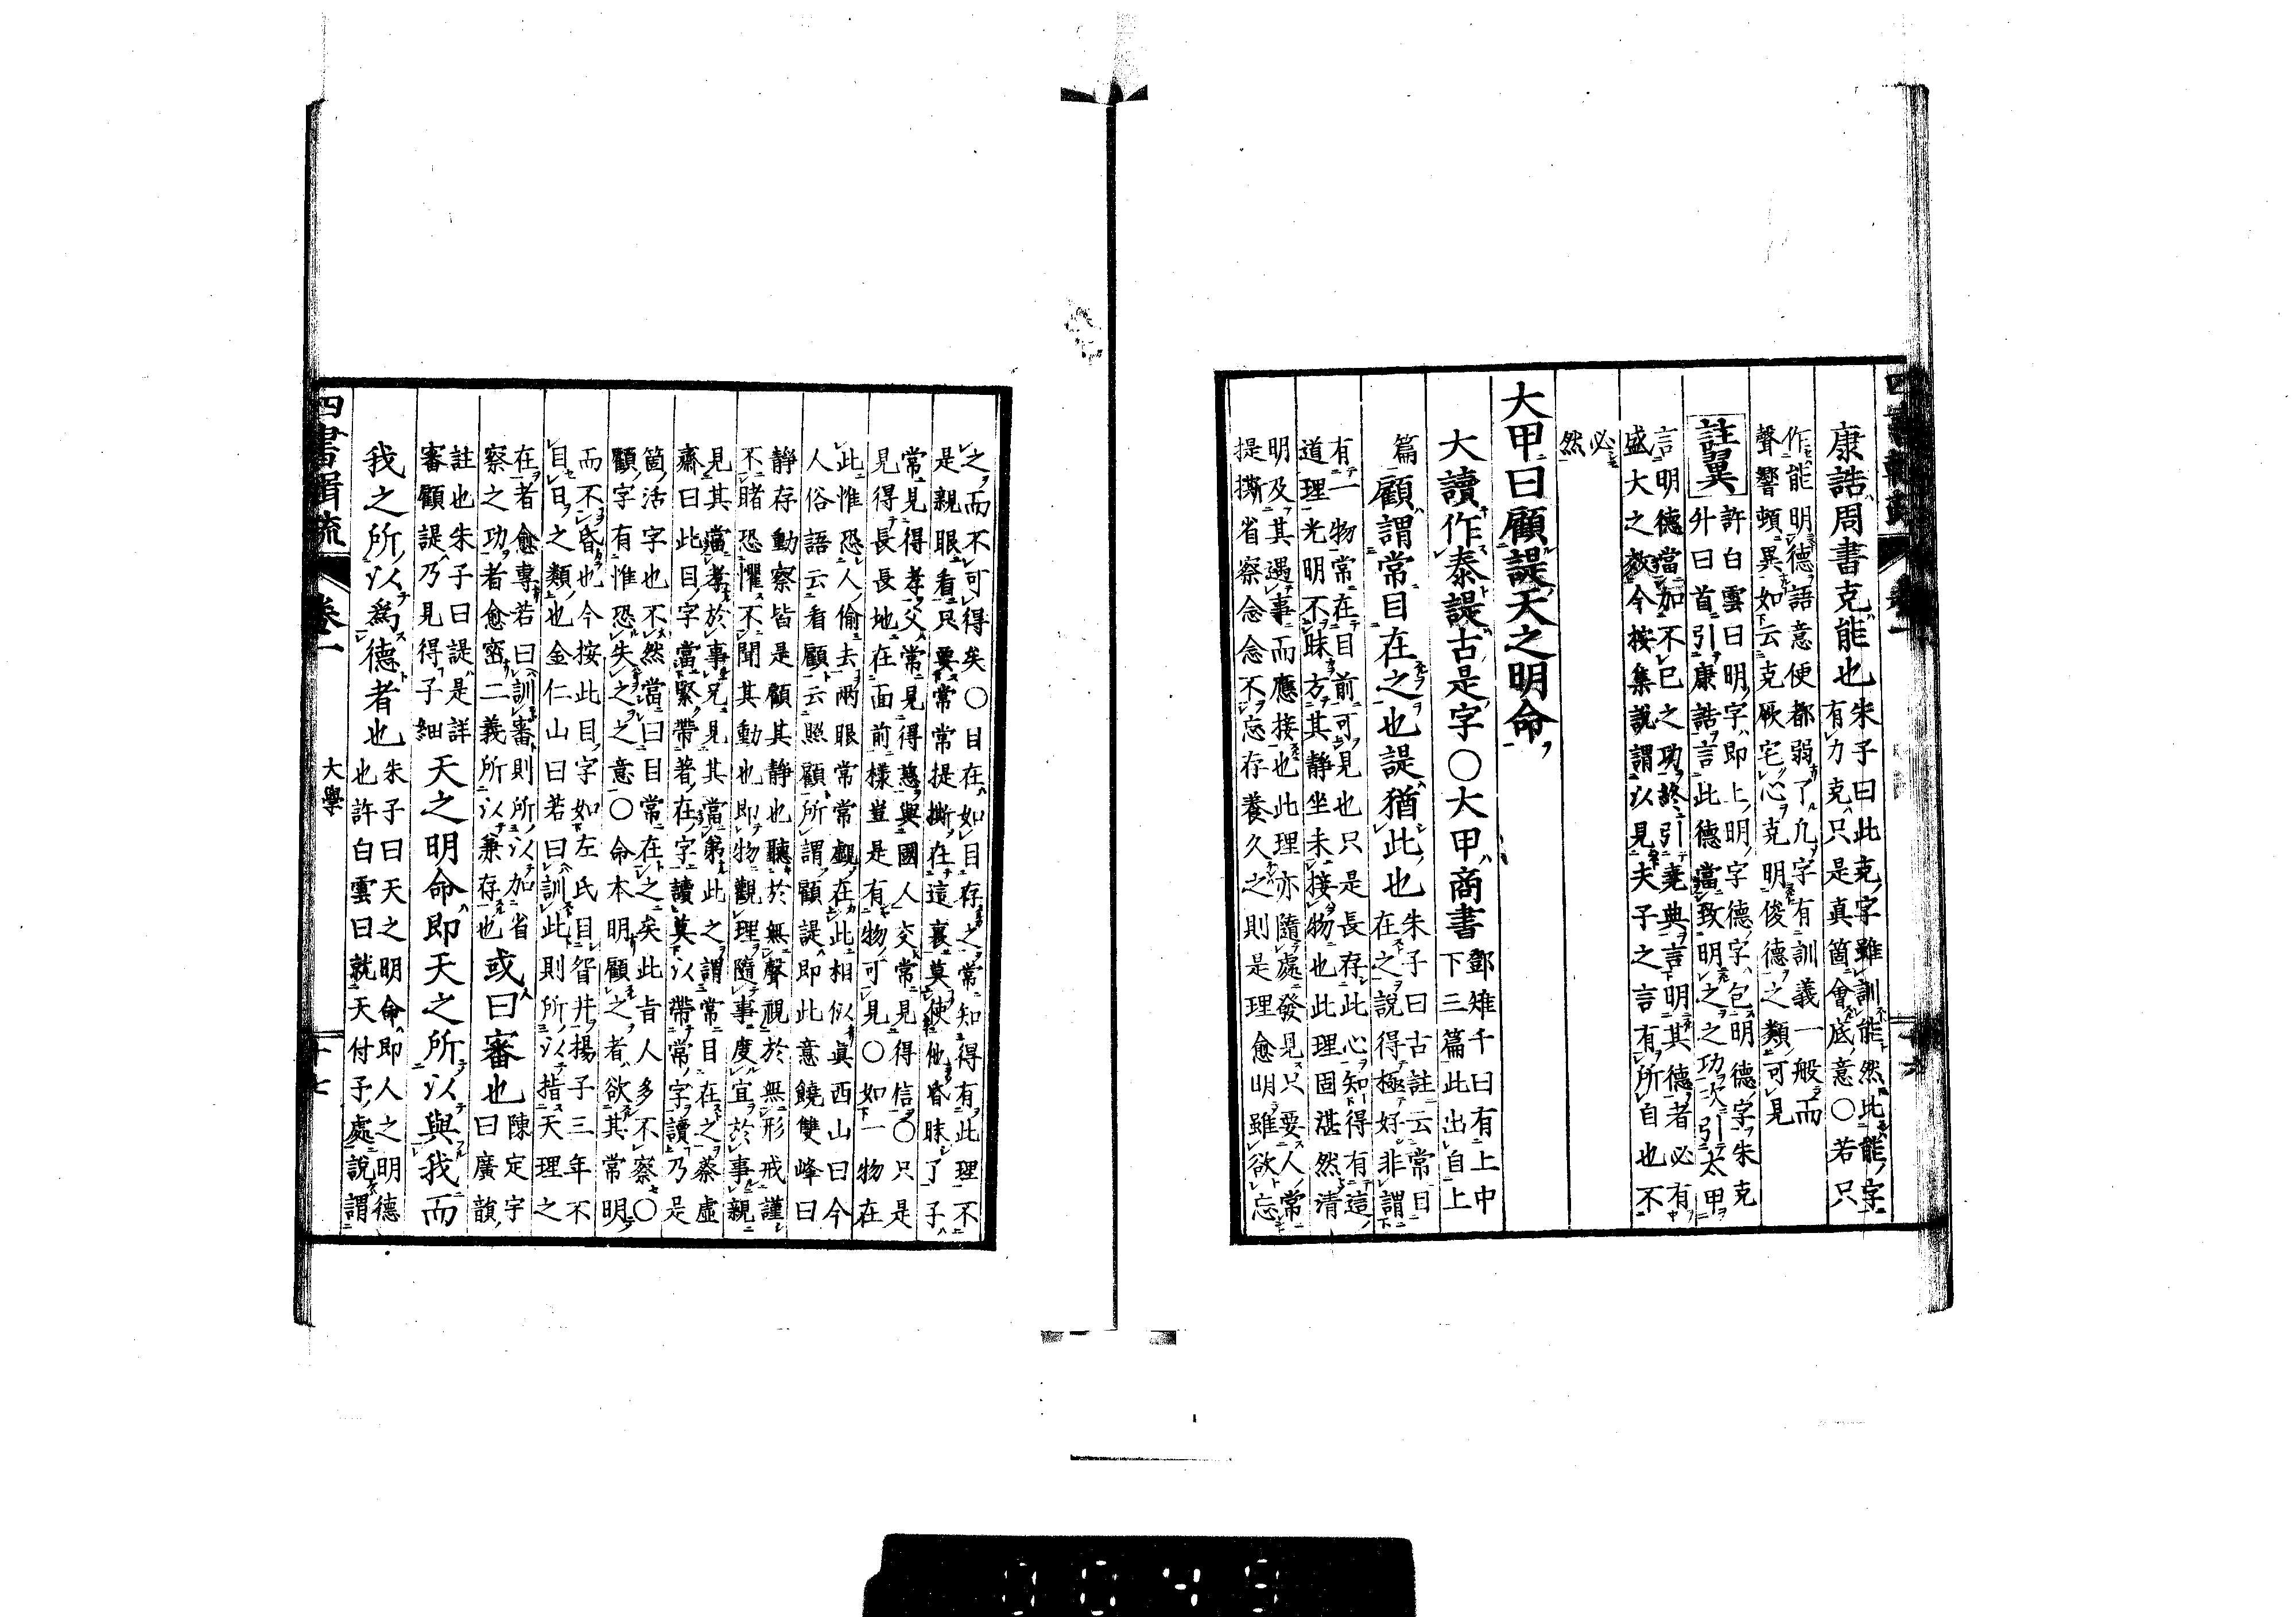 康誥周書克能也
朱子曰此克字雖訓能然此能字
有力克只是真箇會底意〇若只
作能明德語意便都弱了凡字有訓義一般而
聲響頓異如云克厥宅心克明俊德之類可見
註翼
許白雲曰明字即上明字德字包明德字朱克
升曰首引康誥言此德當致明之之功次引太甲
言明德當加不已之功終引堯典言明其德者必有
盛大之效今按集說謂以見夫子之言有所自也不
必
然
大甲曰顧諟天之明命
大讀作泰諟古是字〇大甲商書
鄧雉千曰有上中
下三篇此出自上
篇
顧謂常目在之也諟猶此也
朱子曰古註云常目
在之說得極好非謂
有一物常在目前可見也只是長存此心知得有這
道理光明不昧方其靜坐未接物也此理固湛然清
明及其遇事而應接也此理亦隨處發見只要人常
提撕省察念念不忘存養久之則是理愈明雖欲忘
之而不可得矣〇目在如目存之常知得有此理不
是親眼看只要常常提撕在這裏莫使他昏昧了子
常見得孝父常見得慈與國人交常見得信〇只是
見得長長地在面前樣豈是有物可見〇如一物在
此惟恐人偷去兩眼常常覷在此相似真西山曰今
人俗語云看顧云照顧所謂顧諟即此意饒雙峰曰
靜存動察皆是顧其靜也聽於無聲視於無形戒謹
不睹恐懼不聞其動也即物觀理隨事度宜於事親
見其當孝於事兄見其當弟此之謂常目在之蔡虛
齋曰此目字當緊帶著在字讀莫以帶常字讀乃是
箇活字也不然當曰目常在之矣此旨人多不察〇
顧字有惟恐失之之意〇命本明顧之者欲其常明
而不昏也今按此目字如左氏目眢井揚子三年不
目日之類也金仁山曰若曰訓此則所以指天理之
在者愈專若曰訓審則所以加省
察之功者愈密二義所以兼存也
或曰審也
陳定宇
曰廣韻
註也朱子曰諟是詳
審顧諟乃見得子細
天之明命即天之所以與我而
我之所以為德者也
朱子曰天之明命即人之明德
也許白雲曰就天付予處說謂
四書輯疏
卷一
大學
十七